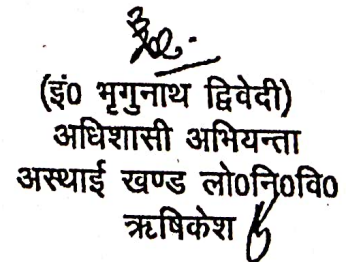 (इं0 भृगुनाथ द्विवेदी)
अधिशासी अभियन्ता
अस्थाई खण्ड लो0नि0वि0
ऋषिकेश